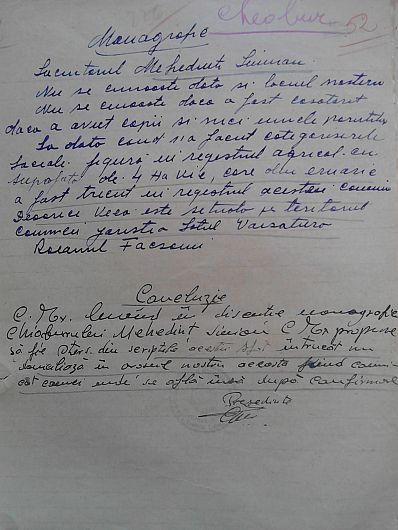 Cheabur 52
Monagrafie
Lucuitorul Mehedint Simion
Nu se cunoaste data si locul nasterii
Nu se cunoaste daca a fost casatorit
daca a avut copii si nici numele parintilor
La data cand s'a facut categorisirile
sociale figura in registrul agricol cu
suprafata de 4 Ha vie, care din eroare
a fost trecut in registrul acestei comuni
Deoarece via este situata pe teritorul
comunei Satul Varsatura
Raionul Focsani
Concluzie
C. Mx. luand in discutie monografie
Chiaburului Mehedint Simion C Mx propune
să fie sters din scriptele acestui Sfat întrucat nu
domiciliaza în orasul nostru aceasta fiind
unde se află însă după confirmare
Presedinte